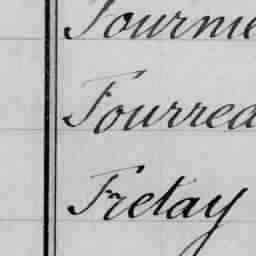 Fourme
Fourred
Fretay